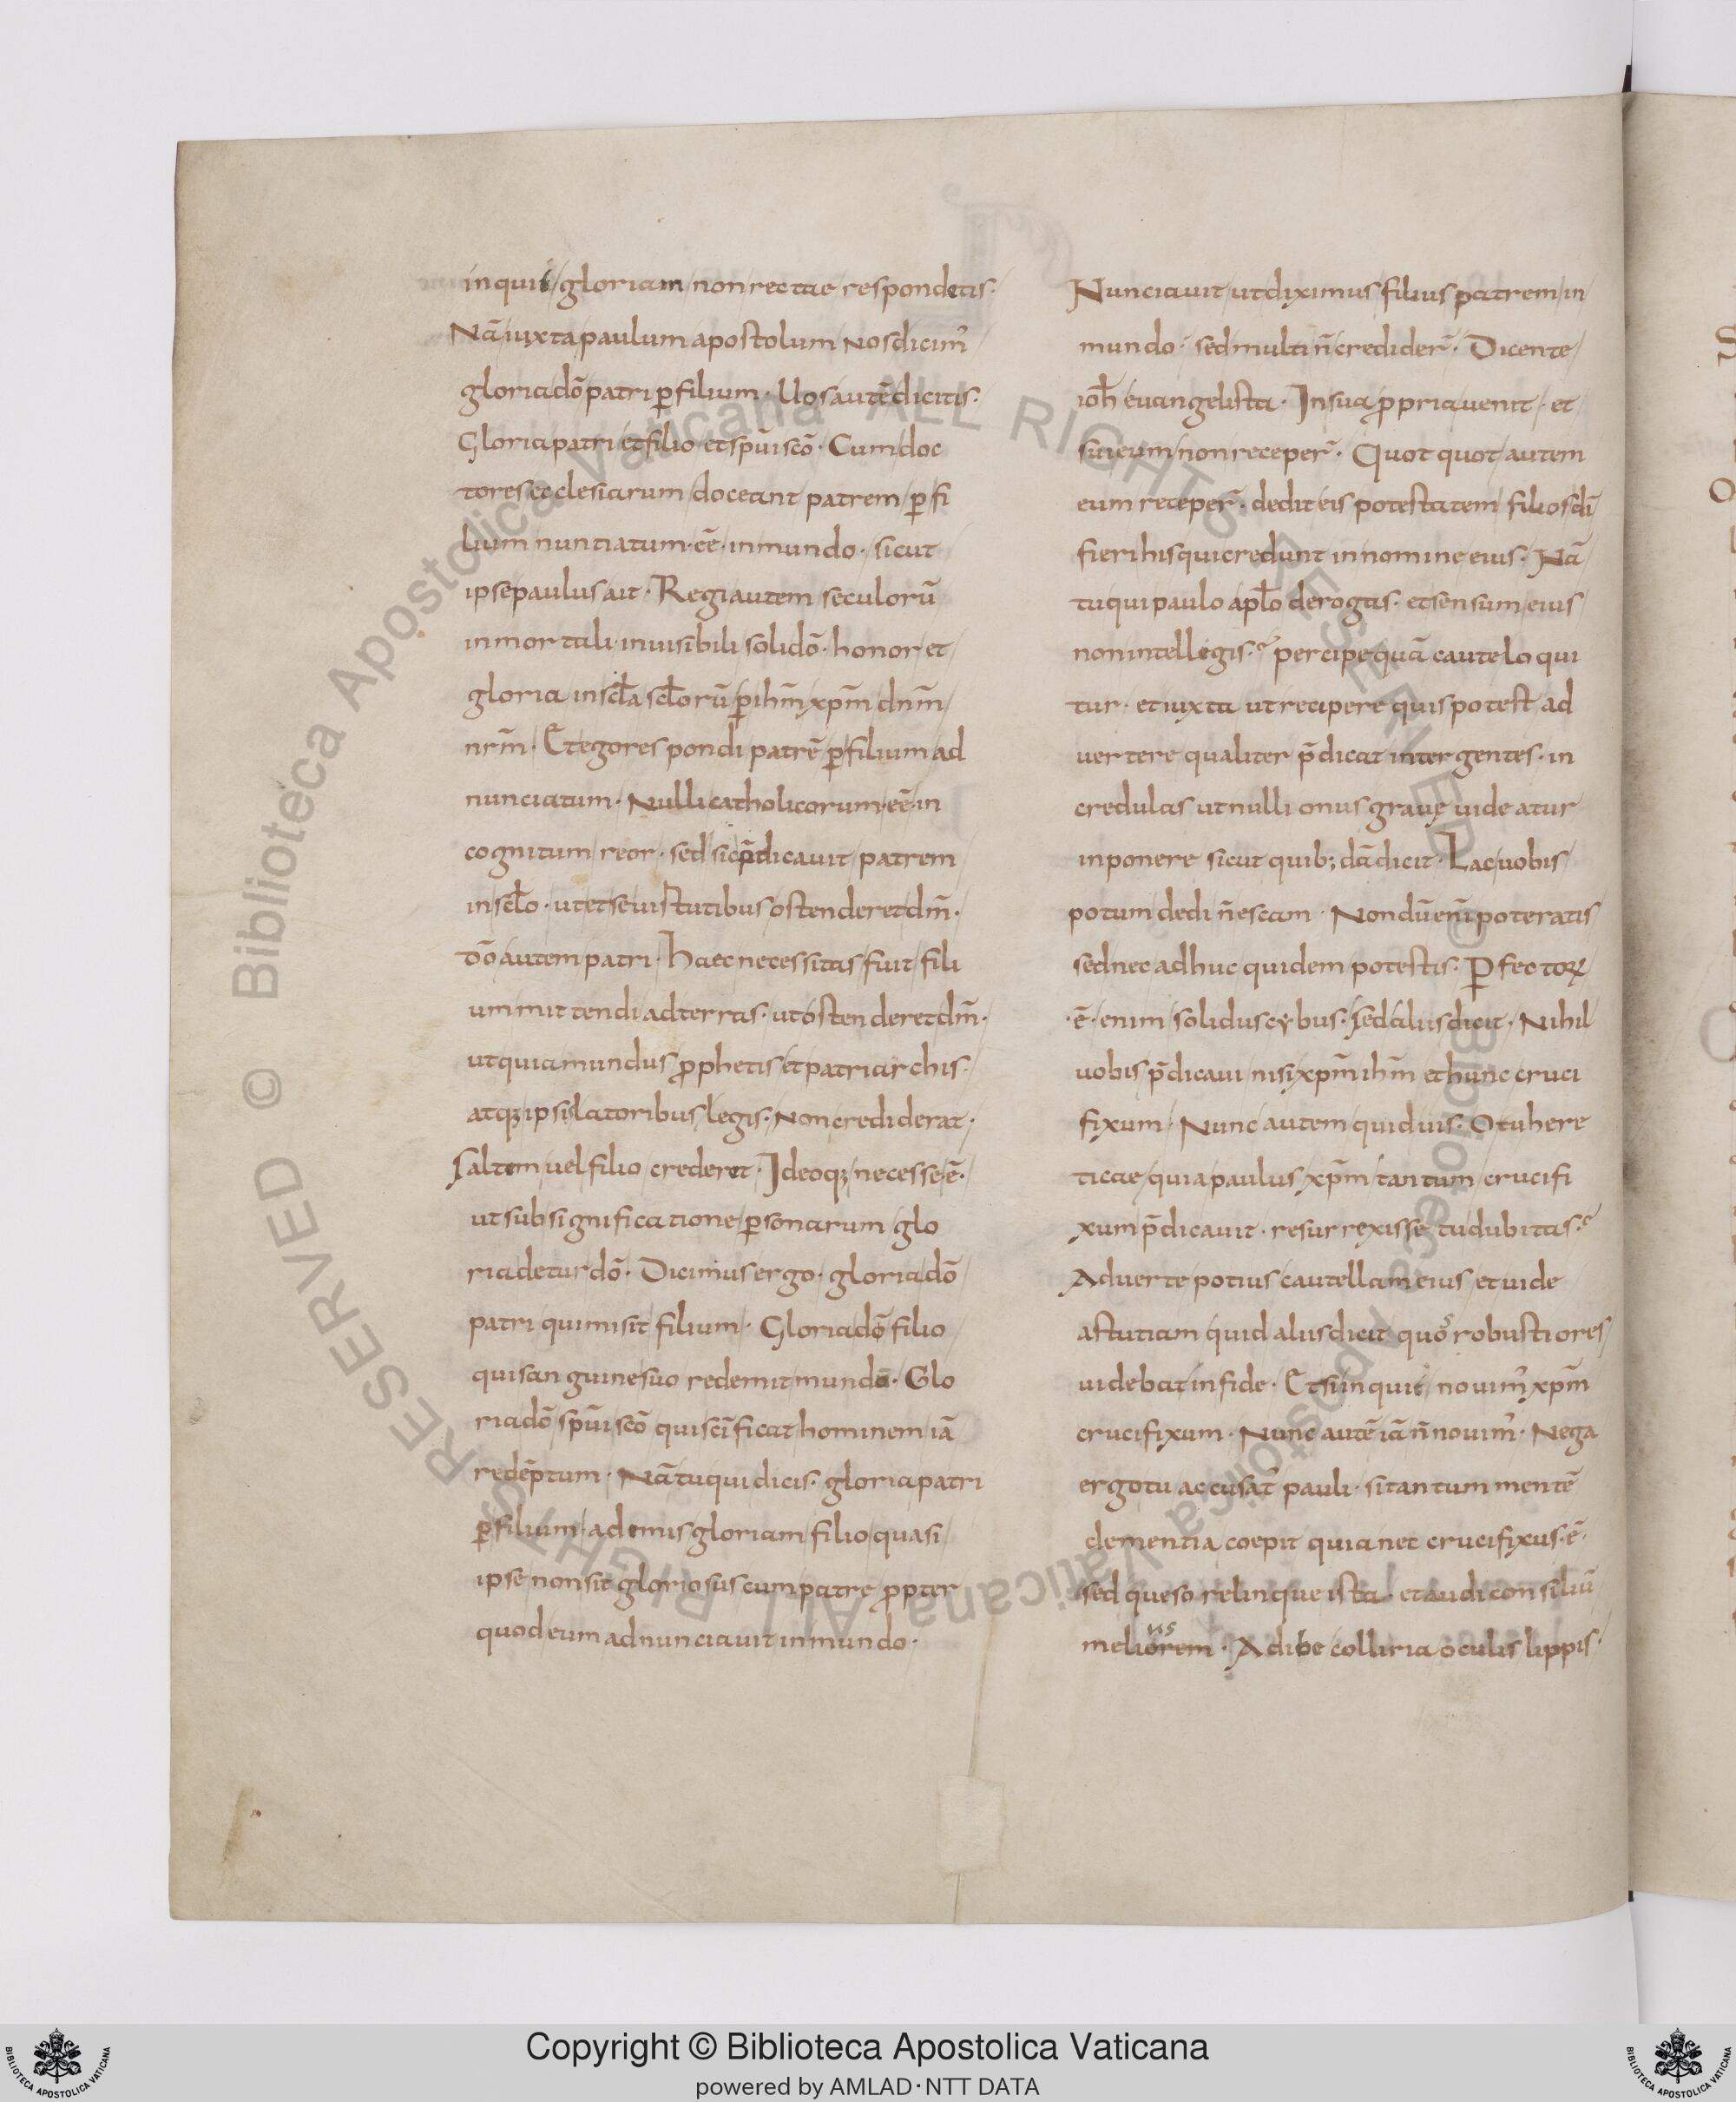 inquit gloriam non rectae respondetis·
Nā iuxta paulum apostolum nos dicim᾽
gloria dō patri ꝑ filium· Uos autē dicitis·
Gloria patri et filio et spūi scō· Cum doc
tores ecclesiarum doceant patrem ꝑ fi
lium nuntiatum·eē·in mundo· sicut
ipse paulus ait· Regi autem seculorū
inmortali inuisibili soli dō· honor et
gloria in scła scłorū ꝑ ihm̄ xpm̄ dnm̄
nrm̄· Et ego respondi patrē ꝑ filium ad
nunciatum· Nulli catholicorum·eē·in
cognitum reor· sed sic p̄dicauit patrem
in scło· ut et se uirtutibus ostenderet dm̄·
dō autem patri· Haec necessitas fuit fili
um mittendi ad terras· ut ostenderet dm̄·
ut quia mundus ꝓphetis et patriarchis·
atqꝫ ipsis latoribus legis· Non crediderat·
Saltem uel filio crederet· Ideoqꝫ necesse·ē·
ut sub significatione ꝑsonarum glo
riadetur dō· Dicimus ergo· gloria dō
patri qui misit filium· Gloria dō filio
qui sanguine suo redemit mundū· Glo
ria dō spūi scō qui scīficat hominem iā
redēptum· Nā tu qui dicis· gloria patri
ꝑ filium· ademis gloriam filio quasi
ipse non sit gloriosus cum patre ꝓpter
quod eum adnunciauit in mundo·
Nunciauit ut diximus filius patrem in
mundo· sed multi n̄ credider̄· Dicente
ioħ euangelista· In sua ꝓpria uenit· et
sui eum non receper̄· Quotquot autem
eum receper̄· dedit eis potestatem filios dī
fieri his qui credunt in nomine eius· Nā
tu qui paulo apło derogas· et sensum eius
non intellegis·? percipe quā caute loqui
tur· et iuxta ut recipere quis potest ad
uertere qualiter p̄dicat inter gentes· in
credulas ut nulli onus graue uideatur
inponere sicut quib; dā dicit· Lac uobis
potum dedi n̄ escam· Nondū enī poteratis
sed nec adhuc quidem potestis· Ꝑfectoꝝ
·ē· enim solidus cybus· Sed aliis dicit· Nihil
uobis p̄dicaui nisi xpm̄ ihm̄ et hunc cruci
fixum· Nunc autem quid uis· O tu here
ticae quia paulus xpm̄ tantum crucifi
xum p̄dicauit· resurrexisse tu dubitas·?
Aduerte potius cautellam eius et uide
astutiam quid aliis dicit quos robustiores
uidebat in fide· Et si inquit nouim᾽ xpm̄
crucifixum· Nunc autē iā n̄ nouim᾽· Nega
ergo tu accusat᾽ pauli· si tantum mentē
dementia coepit quia nec crucifixus·ē·
sed queso relinque ista· et audi consiliū
meliorem· Adibe colliria oculis lippis·
Copyright © Biblioteca Apostolica Vaticana
powered by AMLAD·NTT DATA